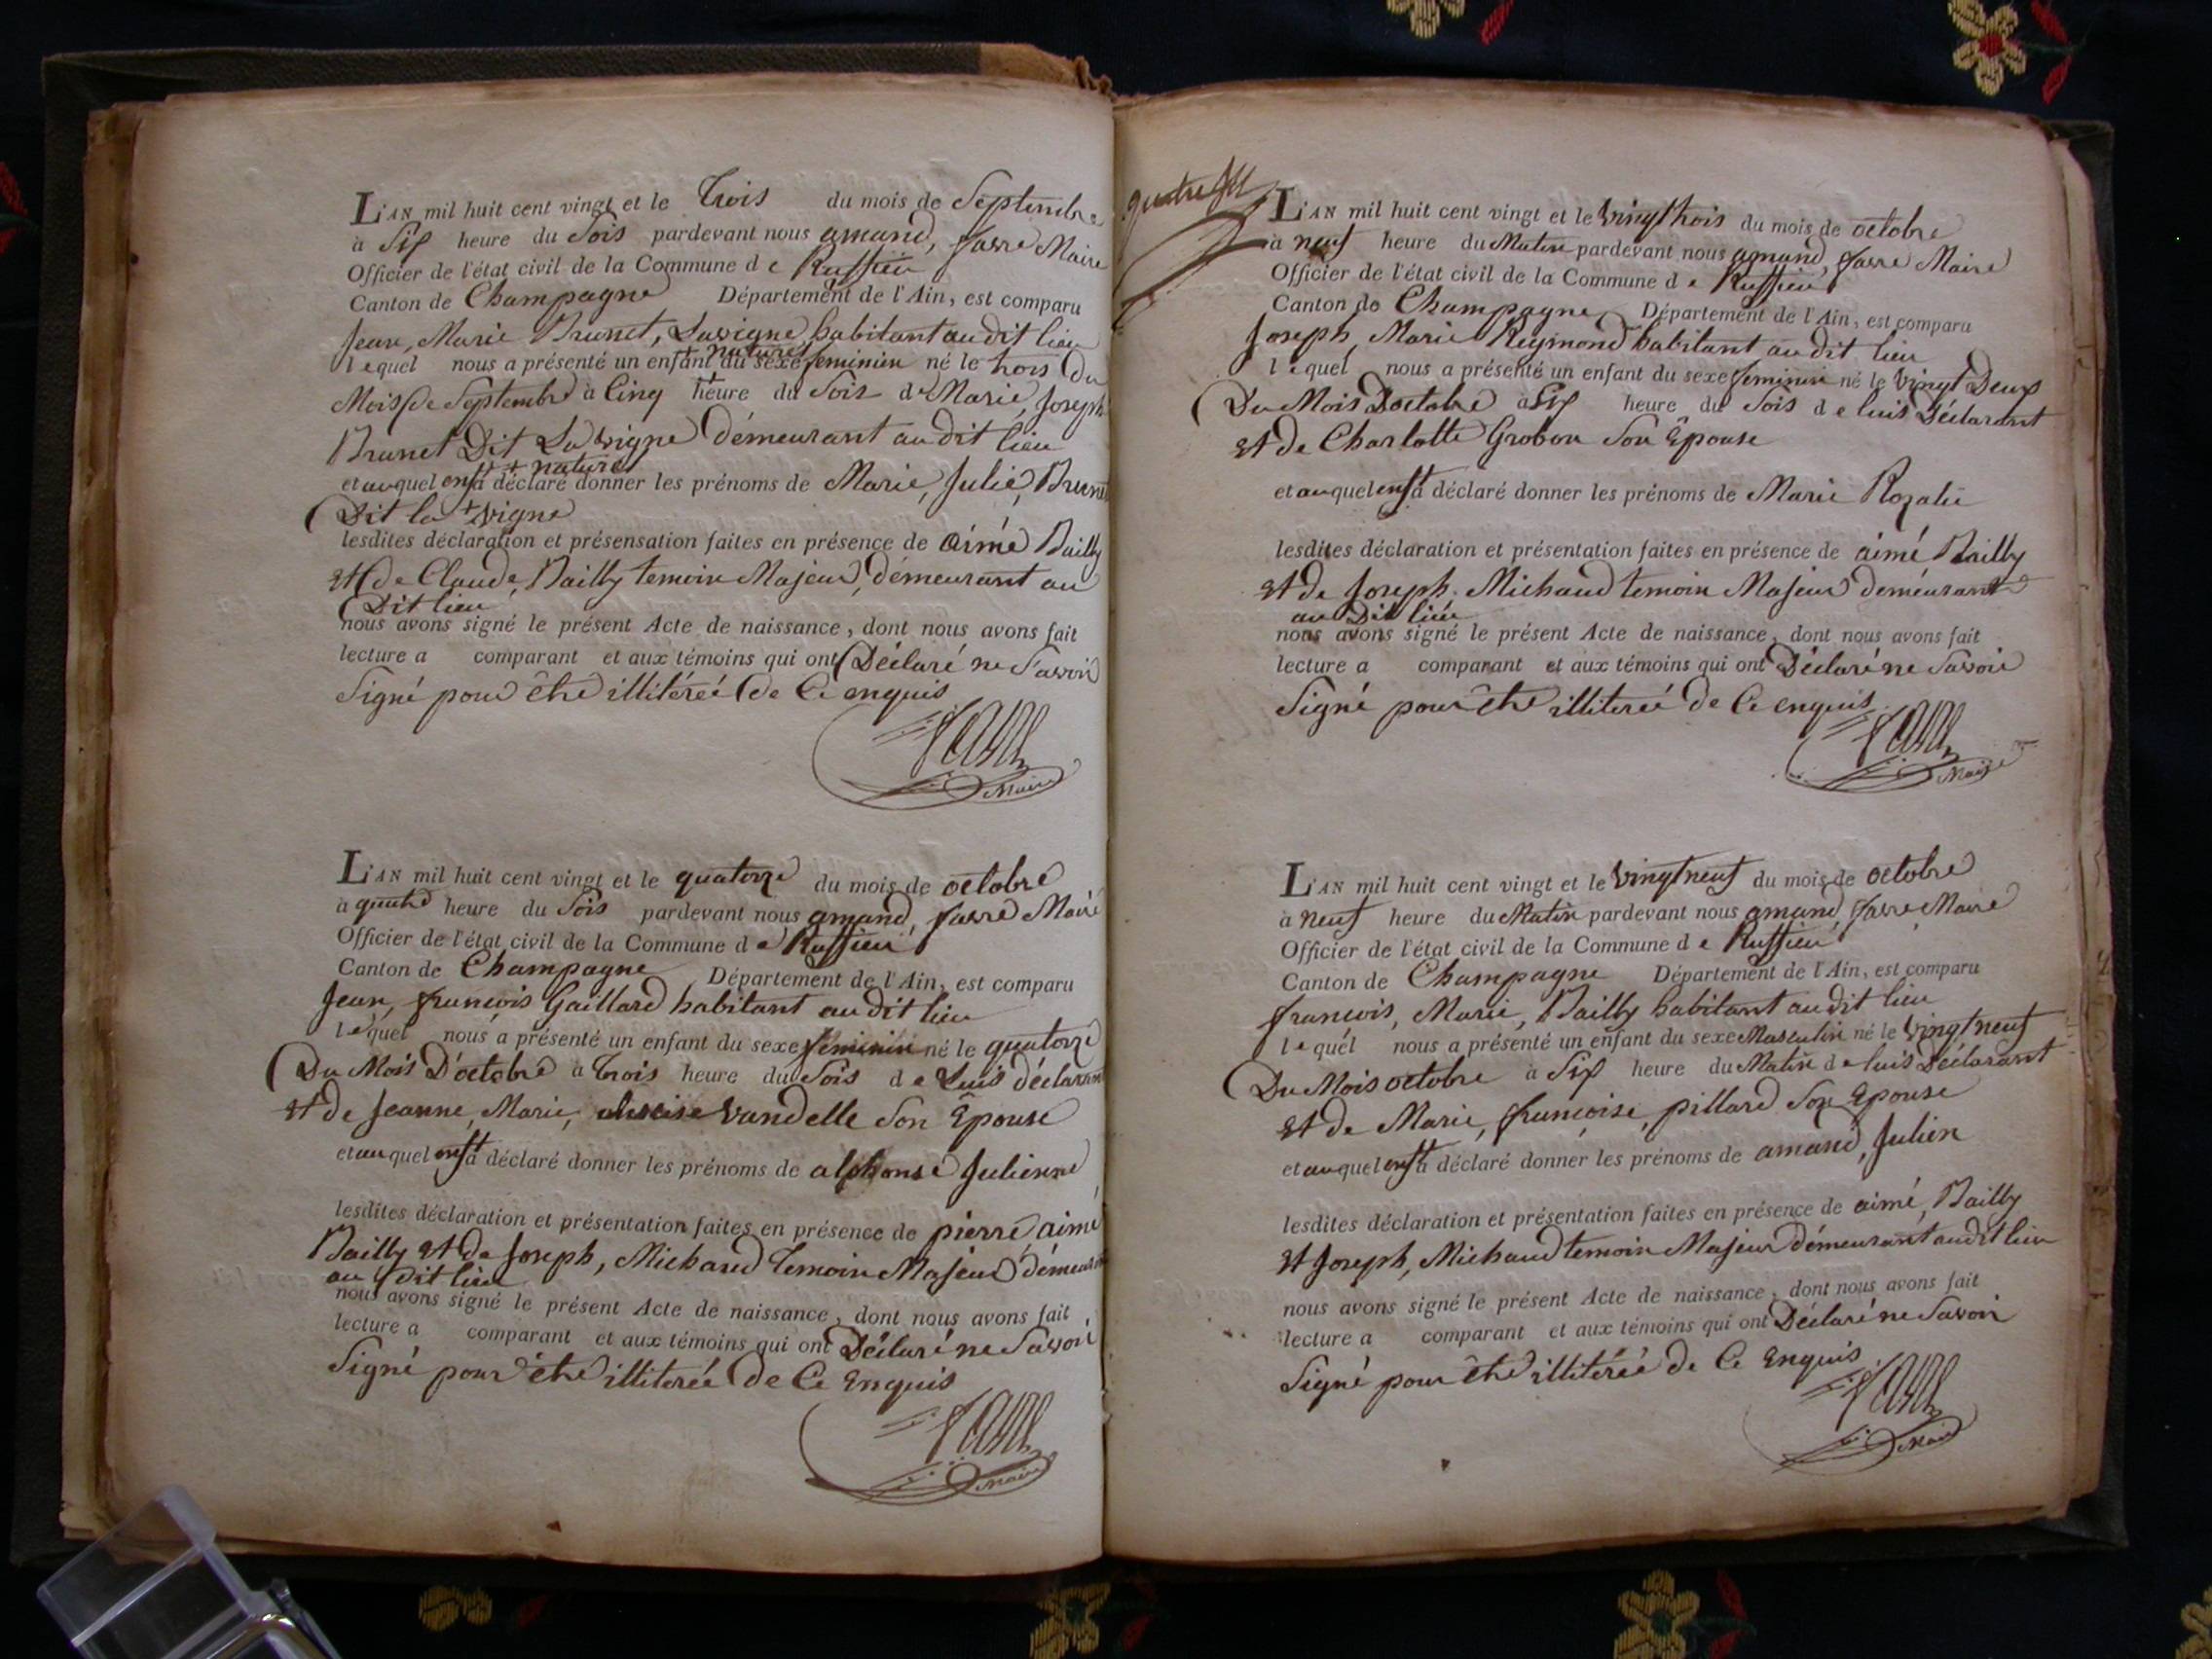 L'AN mil huit cent vingt et le trois du mois de Septembre
à Six heure du Soir pardevant nous amand, favre Maire
Officier de l'état civil de la Commune de Ruffieu
Canton de Champagne Département de l'Ain, est comparu
Jean, Marie Brunet, Lavigne, habitant audit lieu
lequel nous a présenté un enfant + naturel du sexe feminin né le trois Du
Mois De Septembre à Cinq heure du Soir de Marie, Joseph
Brunet Dit Lavigne démeurant au dit lieu
et auquel enft + naturel a déclaré donner les prénoms de Marie, Julie, Brunet
Dit la + vigne
lesdites déclaration et présensation faites en présence de aimé Bailly
Et de Claude, Bailly temoin Majeur, démeurant au
Dit lieu
nous avons signé le présent Acte de naissance, dont nous avons fait
lecture a comparant et aux témoins qui ont Déclaré ne Savoir
Signé pour être illitéreé de Ce enquis
favre
Maire
L'AN mil huit cent vingt et le quatorze du mois de octobre
à quatre heure du Soir pardevant nous amand, favre Maire
Officier de l'état civil de la Commune de Ruffieu
Canton de Champagne Département de l'Ain, est comparu
Jean, francois Gaillard habitant au dit lieu
lequel nous a présenté un enfant du sexe féminin né le quatorze
Du Mois D'octobre à trois heure du Soir de Luis déclarant
Et de Jeanne, Marie, vandelle Son Épouse
et auquel enft a déclaré donner les prénoms de alphonse Julienne
lesdites déclaration et présentation faites en présence de pierre aimé
Bailly Et de Joseph, Michaud temoin Majeur démeurant
au dit lieu
nous avons signé le présent Acte de naissance, dont nous avons fait
lecture a comparant et aux témoins qui ont Déclaré ne Savoir
Signé pour être illitereé De Ce Enquis
favre
Maire
quatre
L'AN mil huit cent vingt et le vingt trois du mois de octobre
à neuf heure du Matin pardevant nous amand, favre Maire
Officier de l'état civil de la Commune de Ruffieu
Canton de Champagne Département de l'Ain, est comparu
Joseph, Marie Reymond habitant au dit lieu
lequel nous a présenté un enfant du sexe feminin né le Vingt Deux
Du Mois Doctobre à Six heure du Soir de luis Déclarant
Et de Charlotte Grobon Son Épouse
et auquel enft a déclaré donner les prénoms de Marie Rozalie
lesdites déclaration et présentation faites en présence de aimé Bailly
Et de Joseph. Michaud temoin Majeur deméurant
au Dit lieu
nous avons signé le présent Acte de naissance, dont nous avons fait
lecture a comparant et aux témoins qui ont Déclaré ne Savoir
Signé pour être illitereé de Ce enquis
favre
Maire
L'AN mil huit cent vingt et le vingt neuf du mois de octobre
à neuf heure du Matin pardevant nous amand favre Maire
Officier de l'état civil de la Commune de Ruffieu
Canton de Champagne Département de l'Ain, est comparu
francois, Marie, Bailly habitant au dit lieu
lequel nous a présenté un enfant du sexe Masculin né le vingt neuf
Du Mois octobre à Six heure du Matin de luis Déclarant
Et de Marie, françoise, pillard Son Epouse
et auquel enft a déclaré donner les prénoms de amand, Julien
lesdites déclaration et présentation faites en présence de aimé, Bailly
Et Joseph, Michaud temoin Majeur démeurant audit lieu
nous avons signé le présent Acte de naissance, dont nous avons fait
lecture a comparant et aux témoins qui ont Déclaré ne Savoir
Signé pour être illitéreé de Ce Enquis
favre
Maire